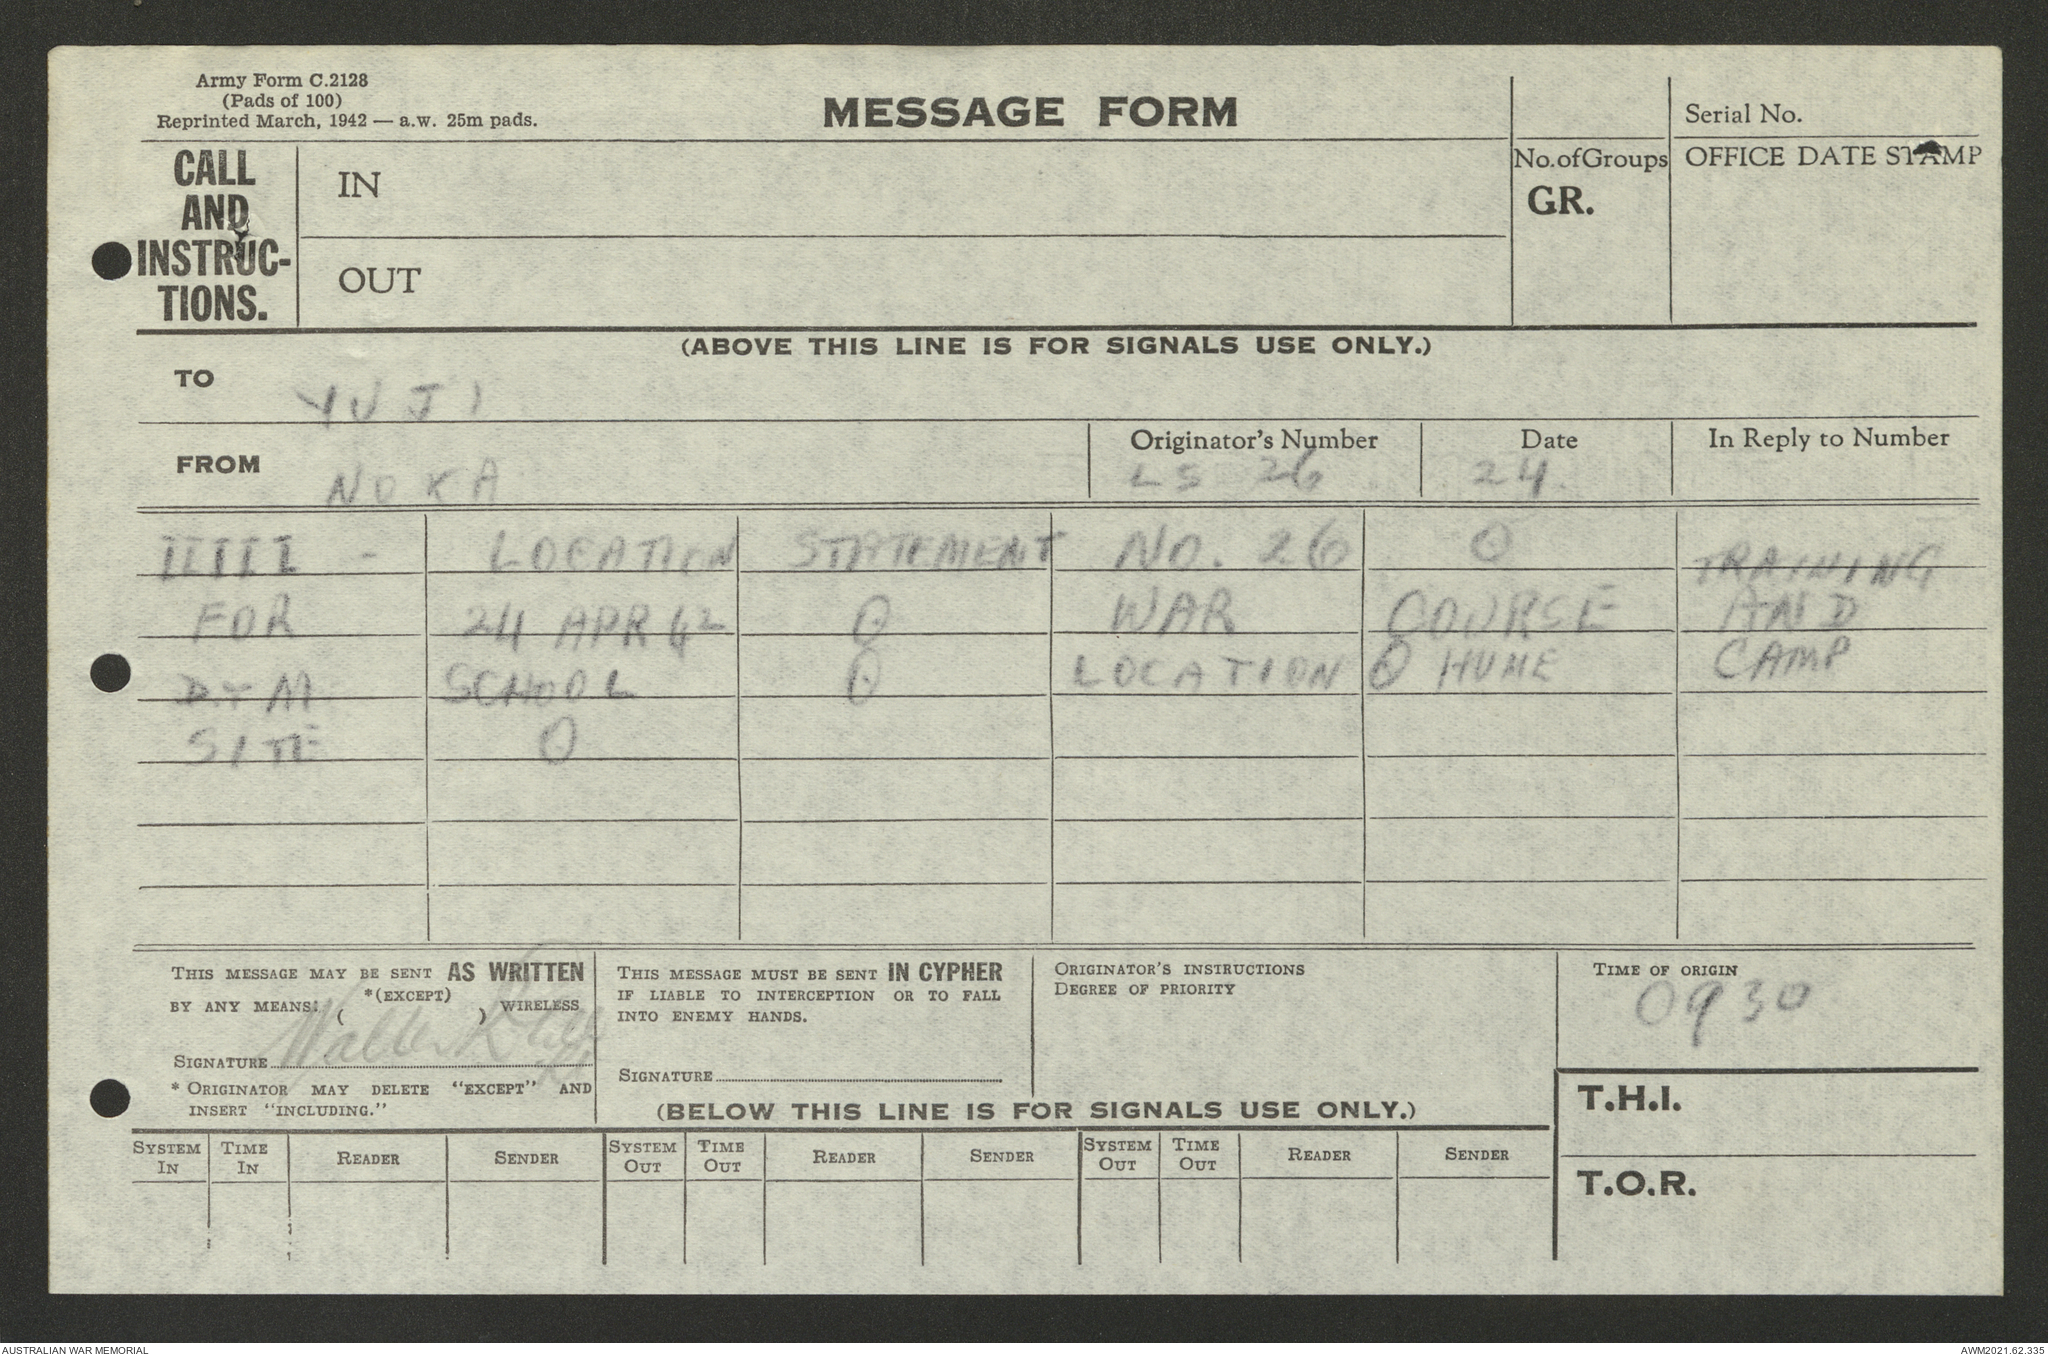 Army Form C.2128
(Pads of 100)
Reprinted March, 1942 — a.w. 25m pads.
MESSAGE FORM
Serial No.
CALL AND INSTRUC-TIONS.
IN
No. of Groups
GR.
OFFICE DATE STAMP
OUT
(ABOVE THIS LINE IS FOR SIGNALS USE ONLY.)
TO
YUJI
FROM
NOKA
Originator's Number
LS 26
Date
24.
In Reply to Number
IIIII - LOCATION STATEMENT NO. 26 O TRAINING
FOR 24 APR 42 O WAR COURSE AND
D+M SCHOOL O LOCATION O HUME CAMP
SITE O
THIS MESSAGE MAY BE SENT AS WRITTEN
BY ANY MEANS: *(EXCEPT) ( ) WIRELESS
SIGNATURE Walter
* ORIGINATOR MAY DELETE "EXCEPT" AND
INSERT "INCLUDING."
THIS MESSAGE MUST BE SENT IN CYPHER
IF LIABLE TO INTERCEPTION OR TO FALL
INTO ENEMY HANDS.
SIGNATURE
ORIGINATOR'S INSTRUCTIONS
DEGREE OF PRIORITY
TIME OF ORIGIN
0930
T.H.I.
T.O.R.
(BELOW THIS LINE IS FOR SIGNALS USE ONLY.)
SYSTEM IN TIME IN READER SENDER SYSTEM OUT TIME OUT READER SENDER SYSTEM OUT TIME OUT READER SENDER
AUSTRALIAN WAR MEMORIAL
AWM2021.62.335